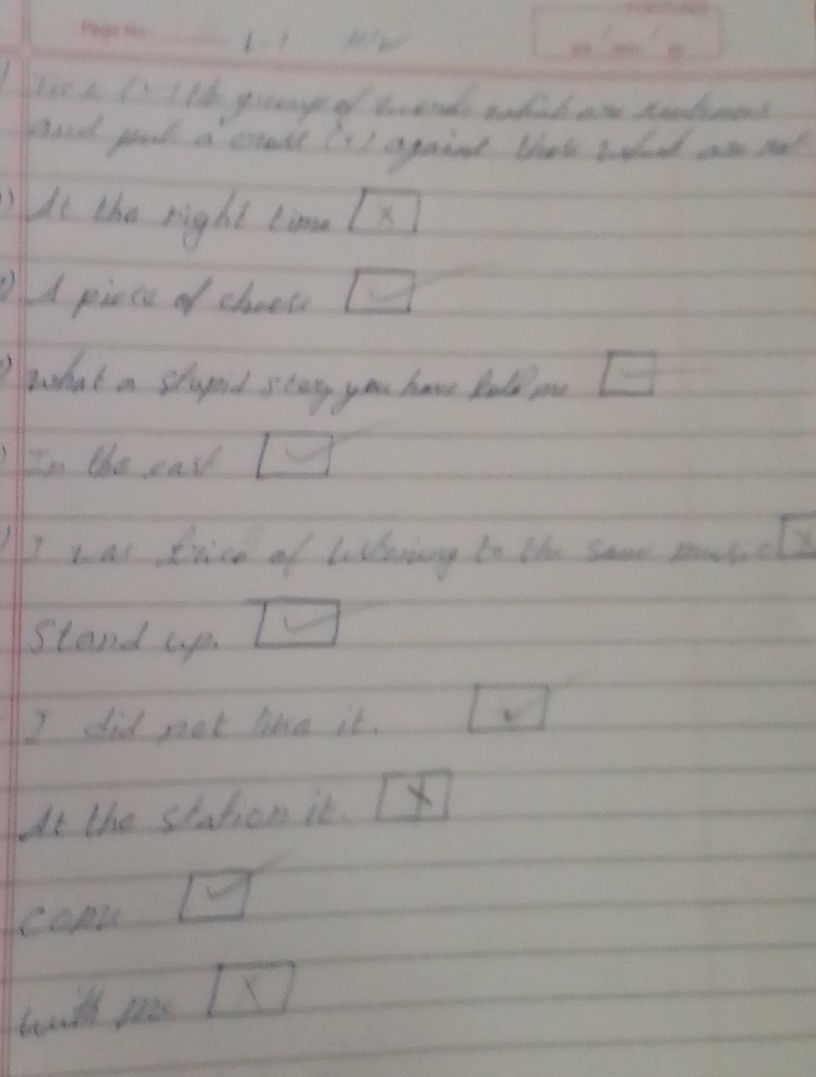 Page No.
L-1 H/W
Tick (✓) the group of words which are sentences
and put a cross (x) against those which are not
At the right time [x]
A piece of cheese [✓]
what a stupid story you have told me
In the east [✓]
I was tried of listening to the same music [x]
Stand up. [✓]
I did not like it. [✓]
At the station it. [x]
came [✓]
with me [x]